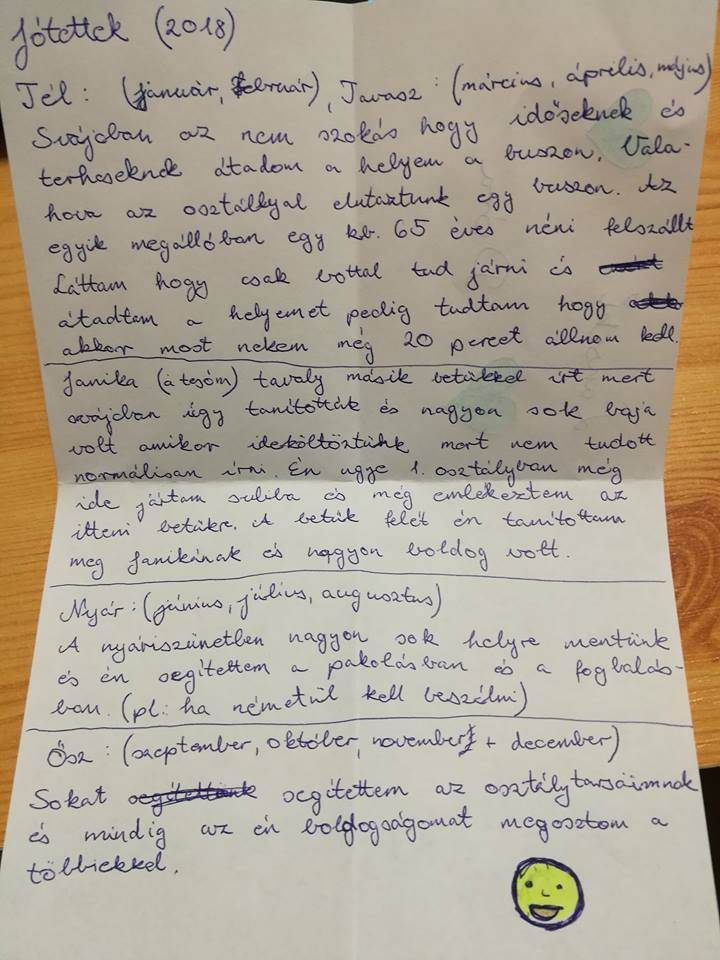 Jótettek (2018)
Tél: (január, február), Tavasz: (március, április, május)
Svájcban az nem szokás hogy időseknek és
terheseknek átadom a helyem a buszon. Vala-
hova az osztállyal elutaztunk egy buszon. Az
egyik megállóban egy kb. 65 éves néni felszállt
Láttam hogy csak bottal tud járni és
átadtam a helyemet pedig tudtam hogy
akkor most nekem még 20 percet állnom kell.
Janika (a tesóm) tavaly másik betűkkel írt mert
svájcban úgy tanították és nagyon sok baja
volt amikor ideköltöztünk mert nem tudott
normálisan írni. Én ugye 1. osztályban még
ide jártam suliba és még emlékeztem az
itteni betűkre. A betűk felét én tanítottam
meg Janikának és nagyon boldog volt.
Nyár: (június, július, augusztus)
A nyáriszünetben nagyon sok helyre mentünk
és én segítettem a pakolásban és a foglalás-
ban. (pl.: ha németül kell beszélni)
Ősz: (szeptember, október, november + december)
Sokat segítettem az osztálytársaimnak
és mindig az én boldogságomat megosztom a
többiekkel.